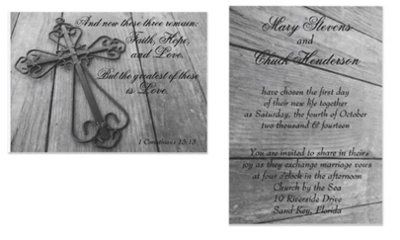 And now these three remain:
Faith, Hope,
and Love.
But the greatest of these
is Love.
1 Corinthians 13:13
Mary Stevens
and
Chuck Henderson
have chosen the first day
of their new life together
as Saturday, the fourth of October
two thousand & fourteen
You are invited to share in theirs
joy as they exchange marriage vows
at four o'clock in the afternoon
Church by the Sea
19 Riverside Drive
Sand Key, Florida